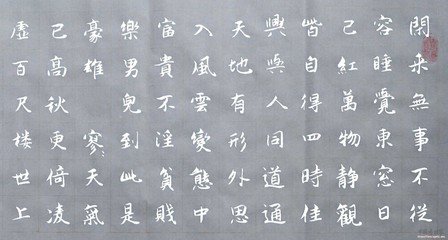 閑来無事不從
容睡覺東窗日
己紅萬物静觀
皆自得四時佳
興與人同道通
天地有形外思
入風雲變態中
富貴不淫貧賤
樂男兒到此是
豪雄寥〻天氣
已高秋更倚凌
虛百尺楼世上